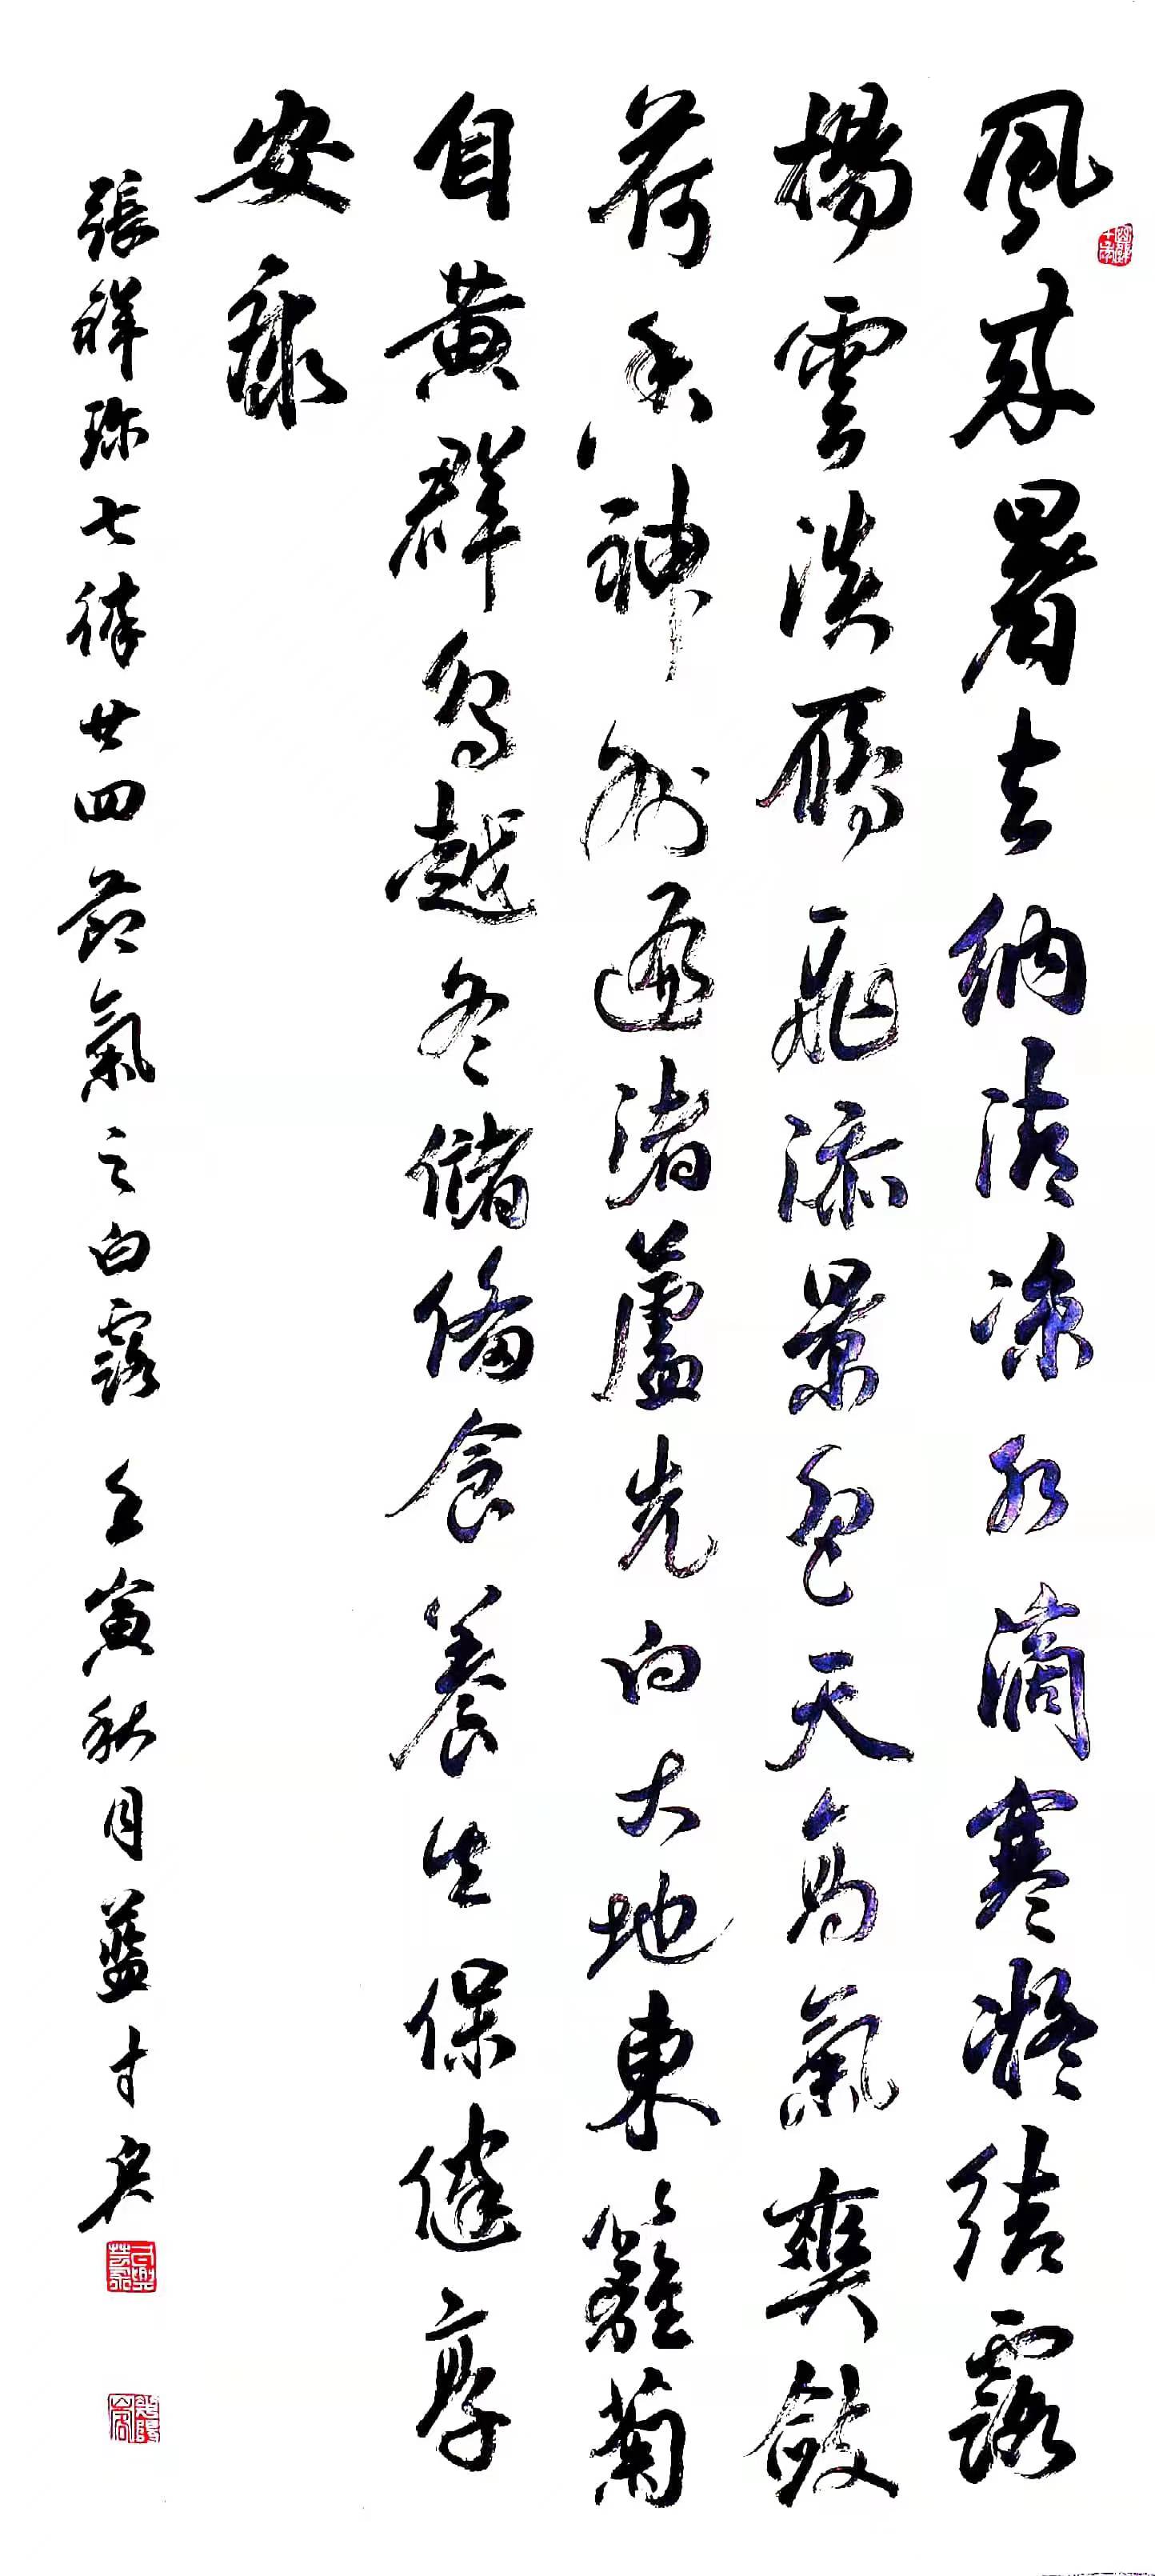 風來暑去納清涼水滴寒凝結露
揚雲淡雁飛添景色天高氣爽斂
荷香神州遍渚蘆先白大地東籬菊
自黃群鳥越冬儲備食養生保健享
安康
張祥珍七律廿四節氣之白露 壬寅秋月藍才君